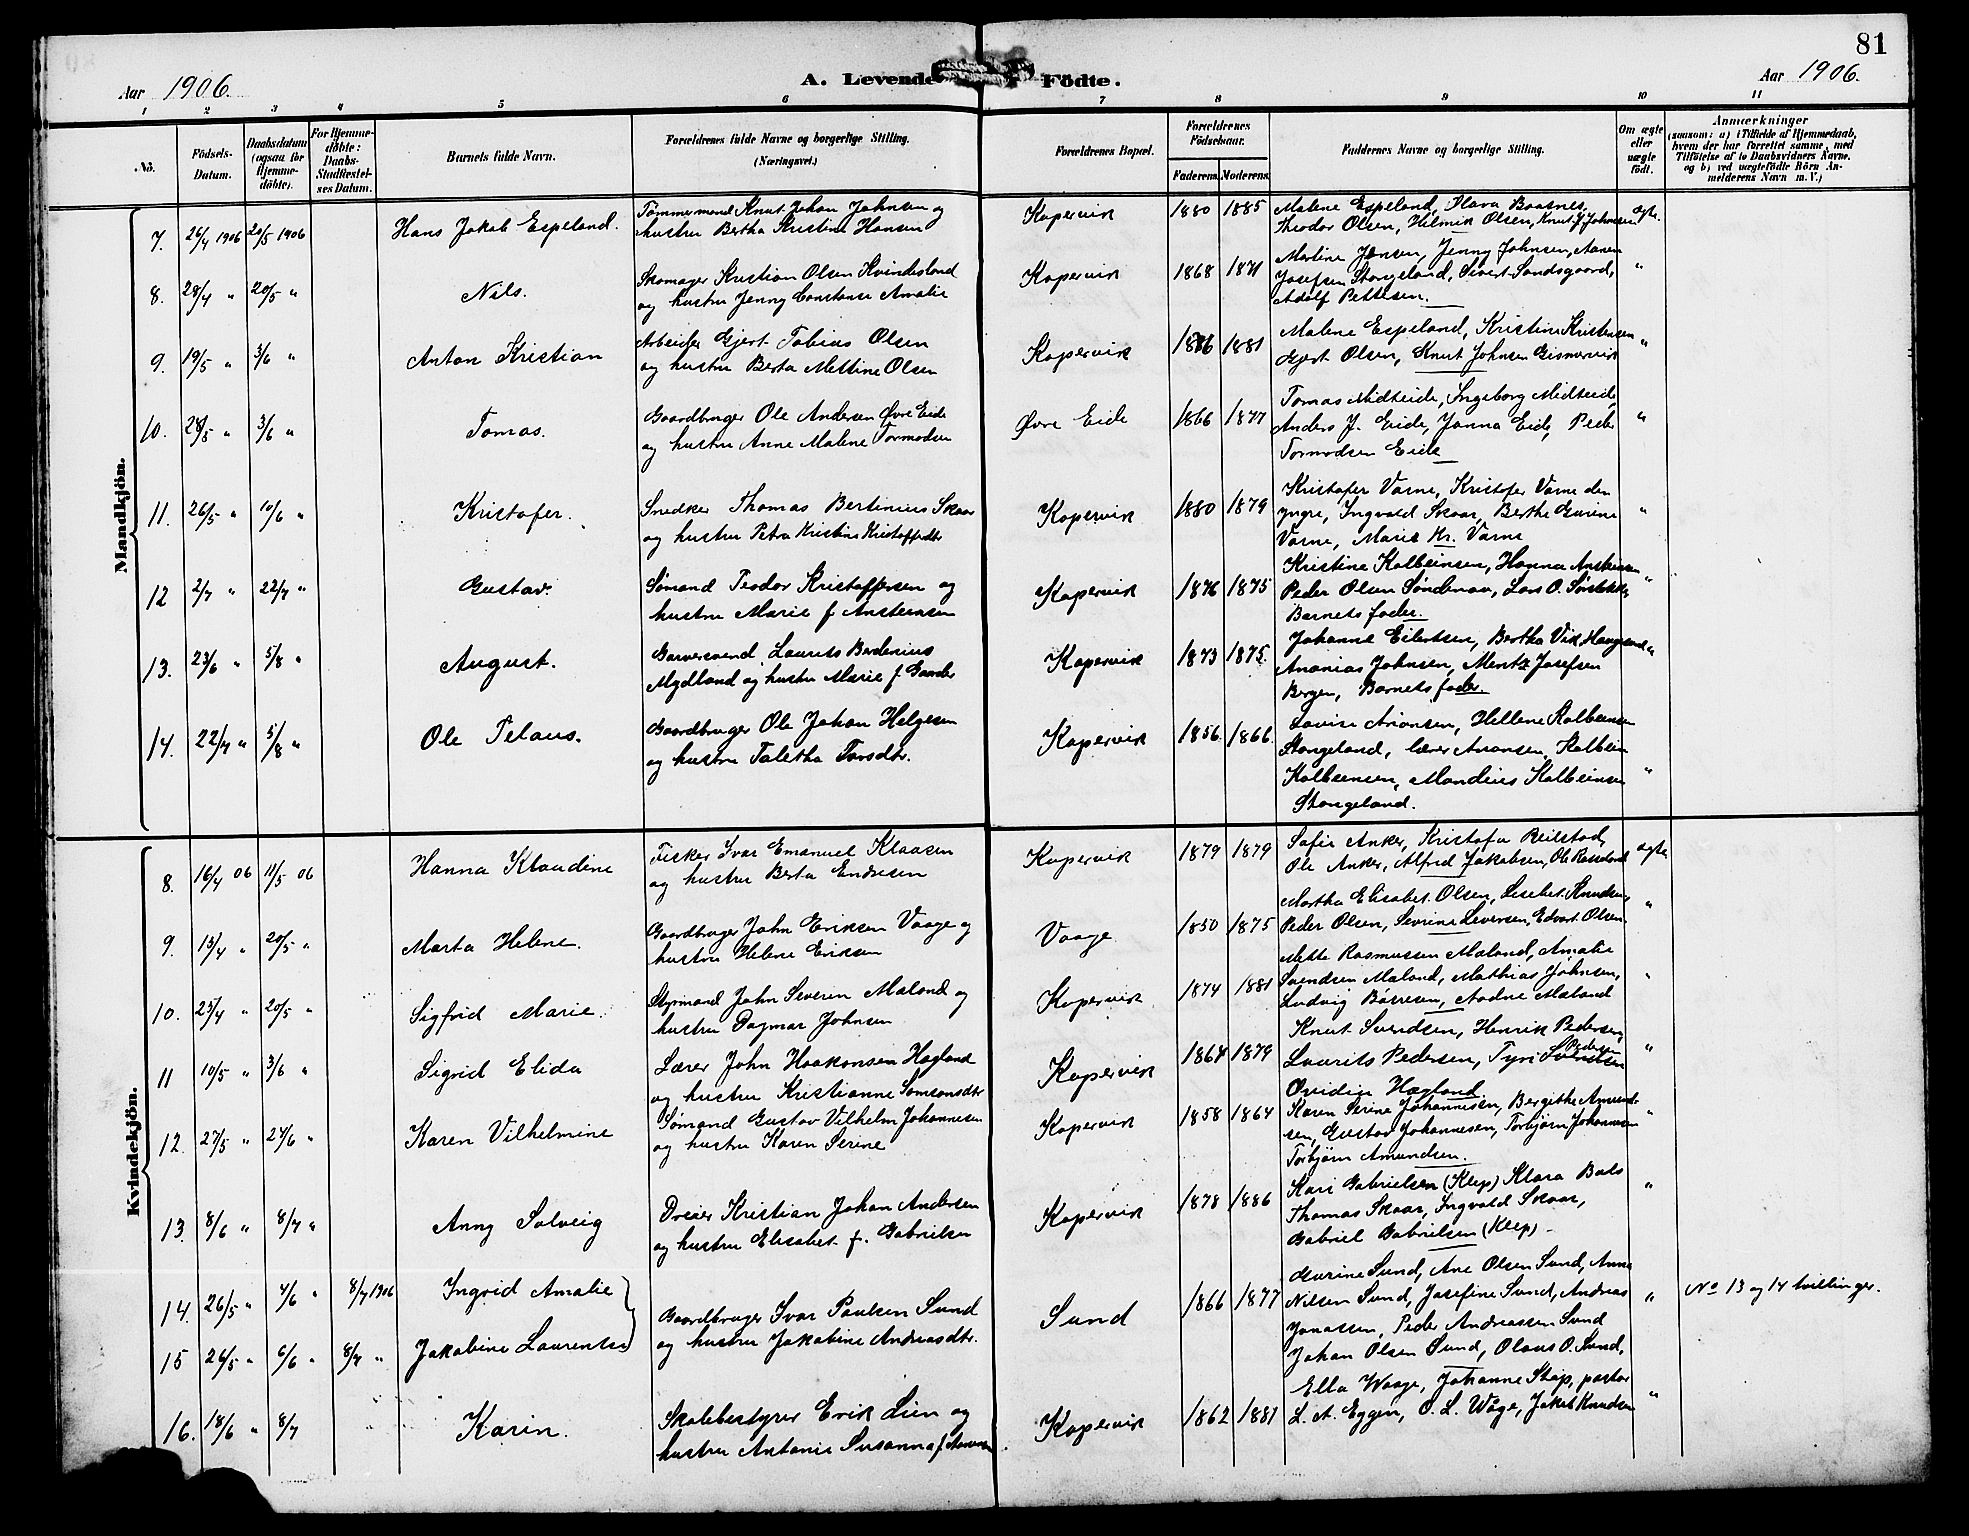 81
Aar 1906.
A. Levende Födte.
Aar 1906.
1 2 3 4 5 6 7 8 9 10 11
No.
Födsels-Datum.
Daabsdatum (ogsaa for Hjemme-döbte).
For Hjemme-döbte: Daabs-Stadfæstel-ses Datum.
Barnets fulde Navn.
Forældrenes fulde Navne og borgerlige Stilling.
(Næringsvei.)
Forældrenes Bopæl.
Forældrenes Födselsaar.
Faderens. Moderens.
Faddernes Navne og borgerlige Stilling.
Om ægte eller uægte födt.
Anmærkninger
(saasom: a) i Tilfælde af Hjemmedaab, hvem der har forrettet samme, med Tilföielse af to Daabsvidners Navne, og b) ved uægtefödte Börn An-melderens Navn m. V.)
Mandkjön.
7. 26/4 1906 20/5 1906 Hans Jakob Espeland. Tømmermand Knut Johan Johnsen og Kopervik 1880 1885 Malene Espeland, Klara Baasnes, ægte.
hustru Bertha Kristine Hansen Theodor Olsen, Helmik Olsen, Knut J. Johnsen
8. 28/4 " 20/5 " Nils. Skomager Kristian Olsen Kvindesland Kopervik 1868 1871 Martine Jensen, Jenny Johnsen, "
og hustru Jenny Constanse Amalie Josefsen Stangeland, Sivert Sandsgaard,
Adolf Pettersen.
9. 19/5 " 3/6 " Anton Kristian Arbeider Gjert Tobias Olsen Kopervik 1876 1881 Malene Espeland, Kristine Kristensen "
og hustru Berta Mettine Olsen Gjert Olsen, Knut Johnsen
10. 28/5 " 3/6 " Tomas. Gaardbruger Ole Andersen Øvre Eide Øvre Eide 1866 1877 Tomas Midteide, Ingeborg Midteide, "
og hustru Anne Malene Tormodsen Anders J. Eide, Janna Eide, Peder
Tormodsen Eide
11. 26/5 " 10/6 " Kristofer. Snedker Thomas Bertinius Skaar Kopervik 1880 1879 Kristofer Varne, Kristofer Varne den "
og hustru Petra Kristine Kristoffersdtr yngre, Ingvald Skaar, Berthe Gurine
Varne, Marie Kr. Varne
12 2/7 " 22/7 " Gustav. Sømand Teodor Kristoffersen og Kopervik 1876 1875 Kristine Kolbeinsen, Hanna Anstensen "
hustru Marie f Anstensen Peder Olsen Søndenaa, Lars O.
Barnets fader.
13. 23/6 " 5/8 " August. Garversvend Laurits Berdenius Kopervik 1873 1875. Johanne Eilertsen, Bertha Vik, Haugesund "
Mydland og hustru Marie f Gander Ananias Johnsen, Mentz Josefsen
Bergen, Barnets fader.
14. 22/7 " 5/8 " Ole Telaus. Gaardbruger Ole Johan Helgesen Kopervik 1856. 1866. Lovise Aronsen, Hellene Kolbeinsen
og hustru Taletha Torsdtr. Stangeland, lærer Aronsen, Kolbein
Kolbeinsen, Mandius Kolbeinsen "
Stangeland.
Kvindekjön.
8. 16/4 06 11/5 06 Hanna Klaudine Fisker Ivar Emanuel Klaasen Kopervik 1879 1879 Sofie Anker, Kristofa Reilstad, ægte
og hustru Berta Endresen Ole Anker, Alfred Jakobsen,
9. 13/4 " 20/5 " Marta Helene. Gaardbruger John Eriksen Vaage og Vaage 1850 1875 Martha Elisabet Olsen, Lisebet Knudsen, "
hustru Helene Eriksen Peder Olsen, Sevrine Severen, Edvart Olsen.
10. 25/4 " 20/5 " Sigfrid Marie. Styrmand John Severin Maland og Kopervik 1874 1881 Mette Rasmussen Maland, Amalie "
hustru Dagmar Johnsen Svendsen Maland, Mathias Johnsen,
Ludvig Børresen, Aadne Maland
11 10/5 " 3/6 " Sigrid Elida Lærer John Haakonsen Hagland Kopervik 1864 1879 Knut Svendsen, Henrik Pedersen, "
og hustru Kristianne Samsonsdtr Laurits Pedersen, Tyri Pedersen
Ovidia Hagland
12. 27/5 " 24/6 " Karen Vilhelmine Sømand Gustav Vilhelm Johannesen Kopervik 1858 1864 Karen Serine Johannesen, Bergithe Amund- "
og hustru Karen Serine sen, Gustav Johannesen, Torbjørn Johannesen
Torbjørn Amundsen.
13. 8/6 " 8/7 " Anny Solveig Dreier Kristian Johan Andersen Kopervik 1878 1886 Kari Gabrielsen (Klep) Klara "
og hustru Elisabet f. Gabrielsen Thomas Skaar, Ingvald Skaar,
Gabriel Gabrielsen (Klep) -
14. 26/5 " 4/6 " 8/7 1906 Ingrid Amalie Gaardbruger Ivar Paulsen Sund Sund 1866 1877 Gurine Sund, Ane Olsen Sund, Anna " No 13 og 14 tvillinger.
15 26/5 " 6/6 " 8/7 " Jakobine Laurentse og hustru Jakobine Andreasdtr. Nilsen Sund, Josefine Sund, Andreas
Jonassen, Peder Andreassen Sund
Johan Olsen Sund, Olaus O. Sund,
16. 18/6 " 8/7 Karin. Skolebestyrer Erik Lien og Kopervik 1862 1881 Ella Waage, Johanne Stap, pastor "
hustru Antonie Susanna f L. A. Eggen, O. L. Wåge, Jakob Knudsen